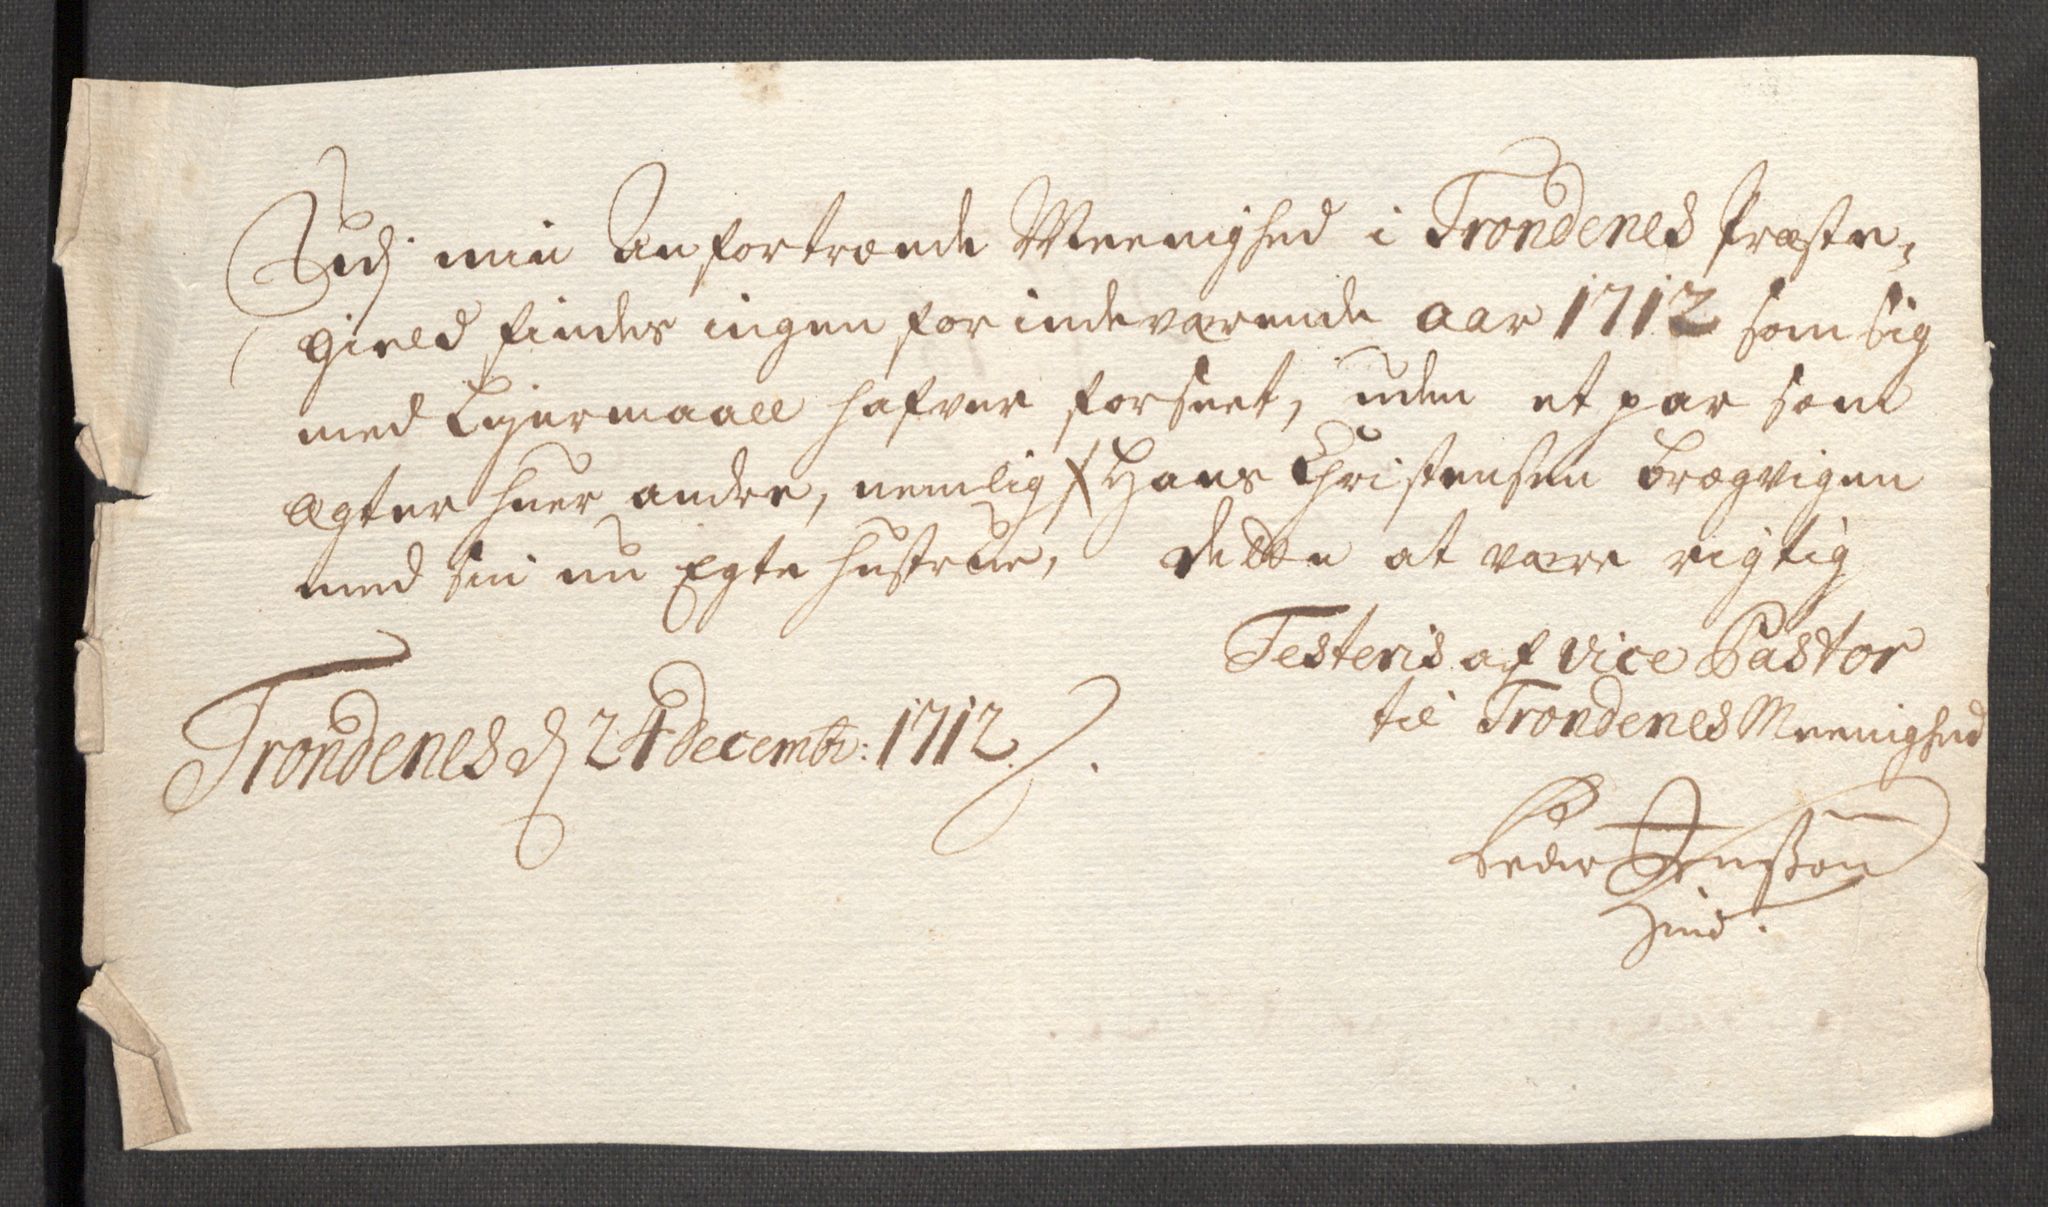 Udj min Anfortroende Meenighed i Trondenes Præste-
gield findes ingen for indeværende aar 1712 som sig
med Leyermaall hafver forseet, uden et par som
ægter huer andre, nemlig Hans Christensen Brægvigen
med sin nu Egte hustrue, dette at være rigtig
Testeris af vice Pastor
til Trondenes Meenighed
Trondenes d 24 decembr: 1712.
Peder Jenßøn
Hind.